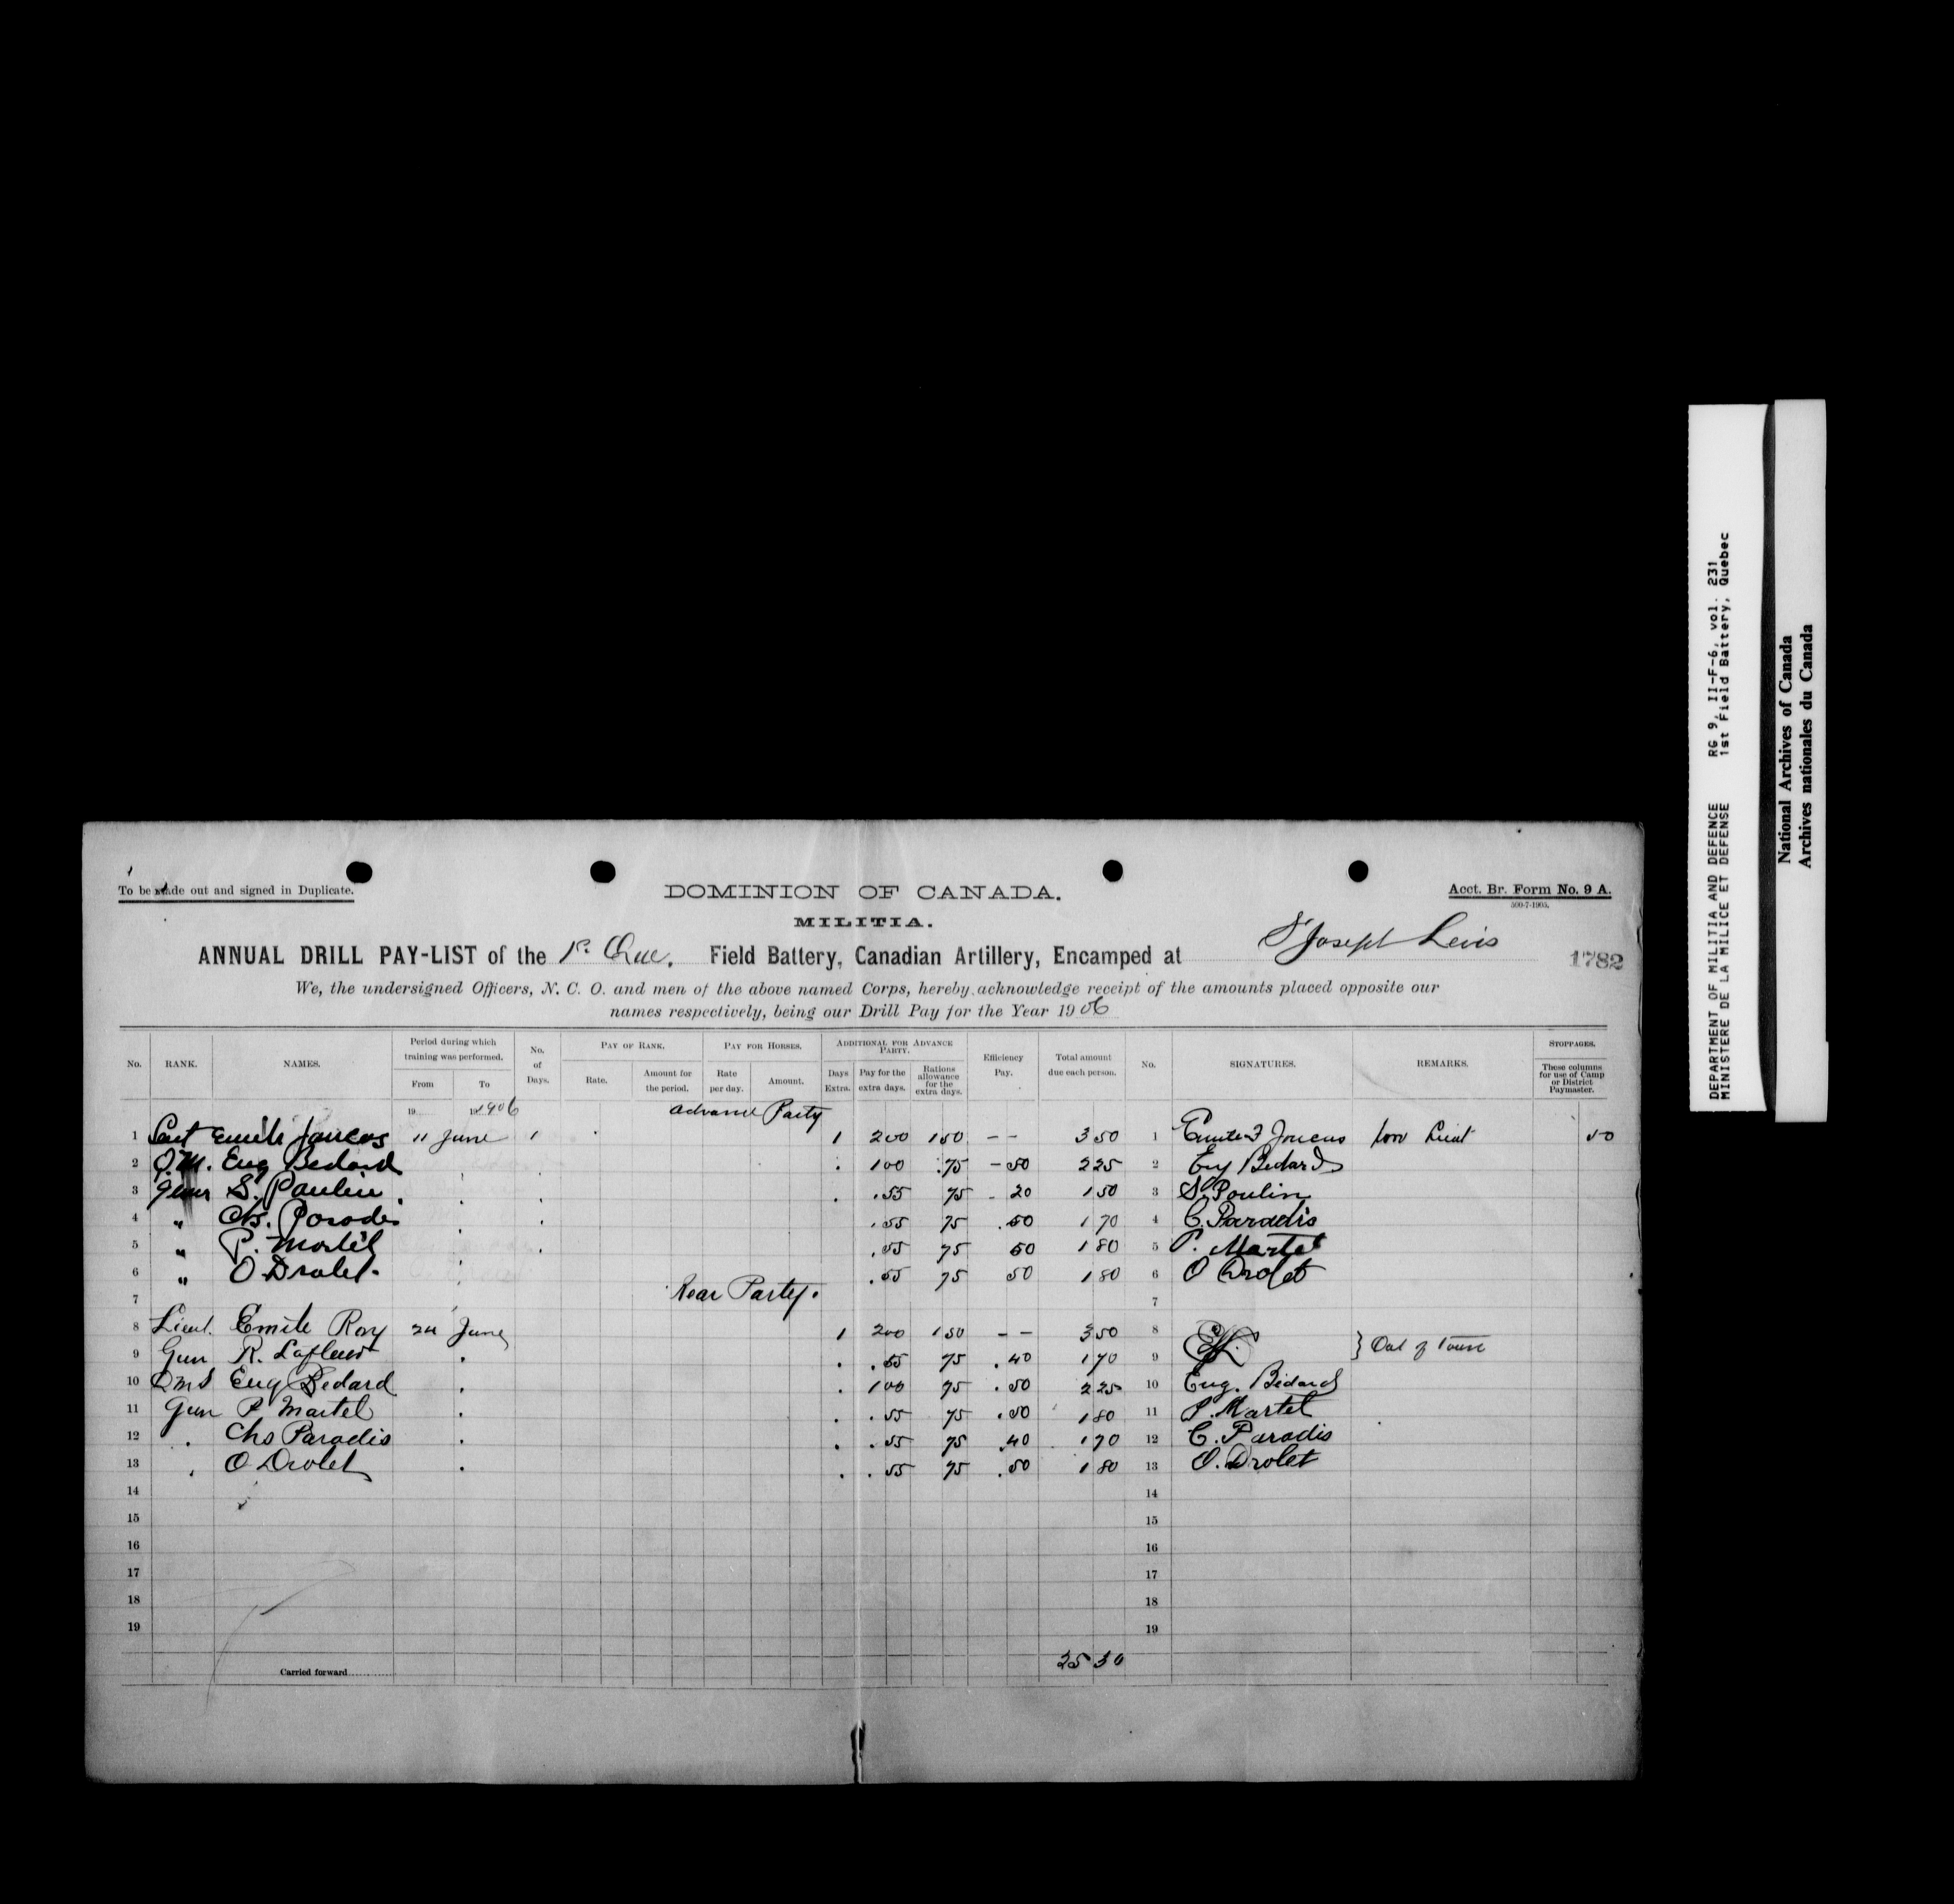 To be made out and signed in Duplicate.
DOMINION OF CANADA.
Acct. Br. Form No. 9 A.
500-7-1905.
MILITIA.
ANNUAL DRILL PAY-LIST of the 1st Que. Field Battery, Canadian Artillery, Encamped at St Joseph Levis
1782
We, the undersigned Officers, N. C. O. and men of the above named Corps, hereby acknowledge receipt of the amounts placed opposite our
names respectively, being our Drill Pay for the Year 1906
No. RANK. NAMES. Period during which training was performed. From To No. of Days. PAY OF RANK. Rate. Amount for the period. PAY FOR HORSES. Rate per day. Amount. ADDITIONAL FOR ADVANCE PARTY. Days Extra. Pay for the extra days. Rations allowance for the extra days. Efficiency Pay. Total amount due each person. No. SIGNATURES. REMARKS. STOPPAGES. These columns for use of Camp or District Paymaster.
19 1906 Advance Party
1 Emile 11 June 1 1 200 150 -- 350 1 Lieut 50
2 Q.M. Eug Bedard . 100 .75 - 50 225 2 Eug Bedard
3 S. Poulin . . .55 75 - 20 150 3 S. Poulin
4 " Chs. Paradis . .55 75 .50 170 4 C. Paradis
5 " P. Martel . .55 75 50 180 5 P. Martel
6 " O Drolet. .55 75 50 180 6 O Drolet
7 Rear Party. 7
8 Lieut. Emile Roy 24 June 1 200 150 -- 350 8
9 Gun R. Lafleur . . .55 75 .40 170 9 } Out of town
10 QMS Eug Bedard . . 100 75 .50 225 10 Eug. Bédard
11 Gun P Martel . . .55 75 .50 180 11 P. Martel
12 . Chs Paradis . . .55 75 .40 170 12 C. Paradis
13 . O Drolet . . .55 75 .50 180 13 O. Drolet
14 14
15 15
16 16
17 17
18 18
19 19
Carried forward 25 30
DEPARTMENT OF MILITIA AND DEFENCE RG 9, II-F-6, vol. 231
MINISTERE DE LA MILICE ET DEFENSE 1st Field Battery, Quebec
National Archives of Canada
Archives nationales du Canada